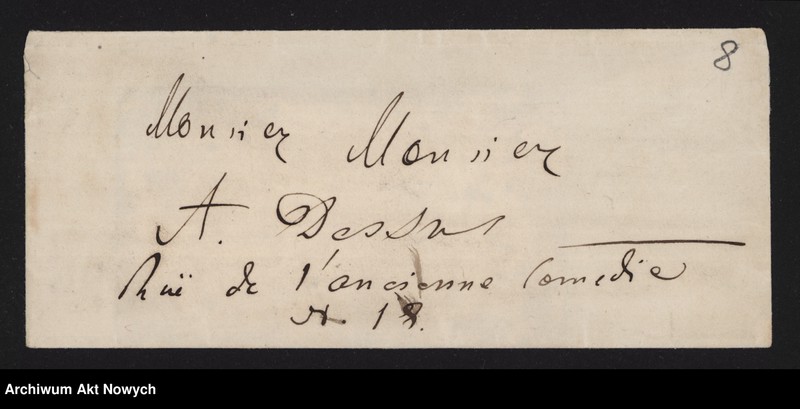 8
Monsieur Monsieur
A. Dessus
Rüe de l'ancienne Comedie
N. 18.
Archiwum Akt Nowych